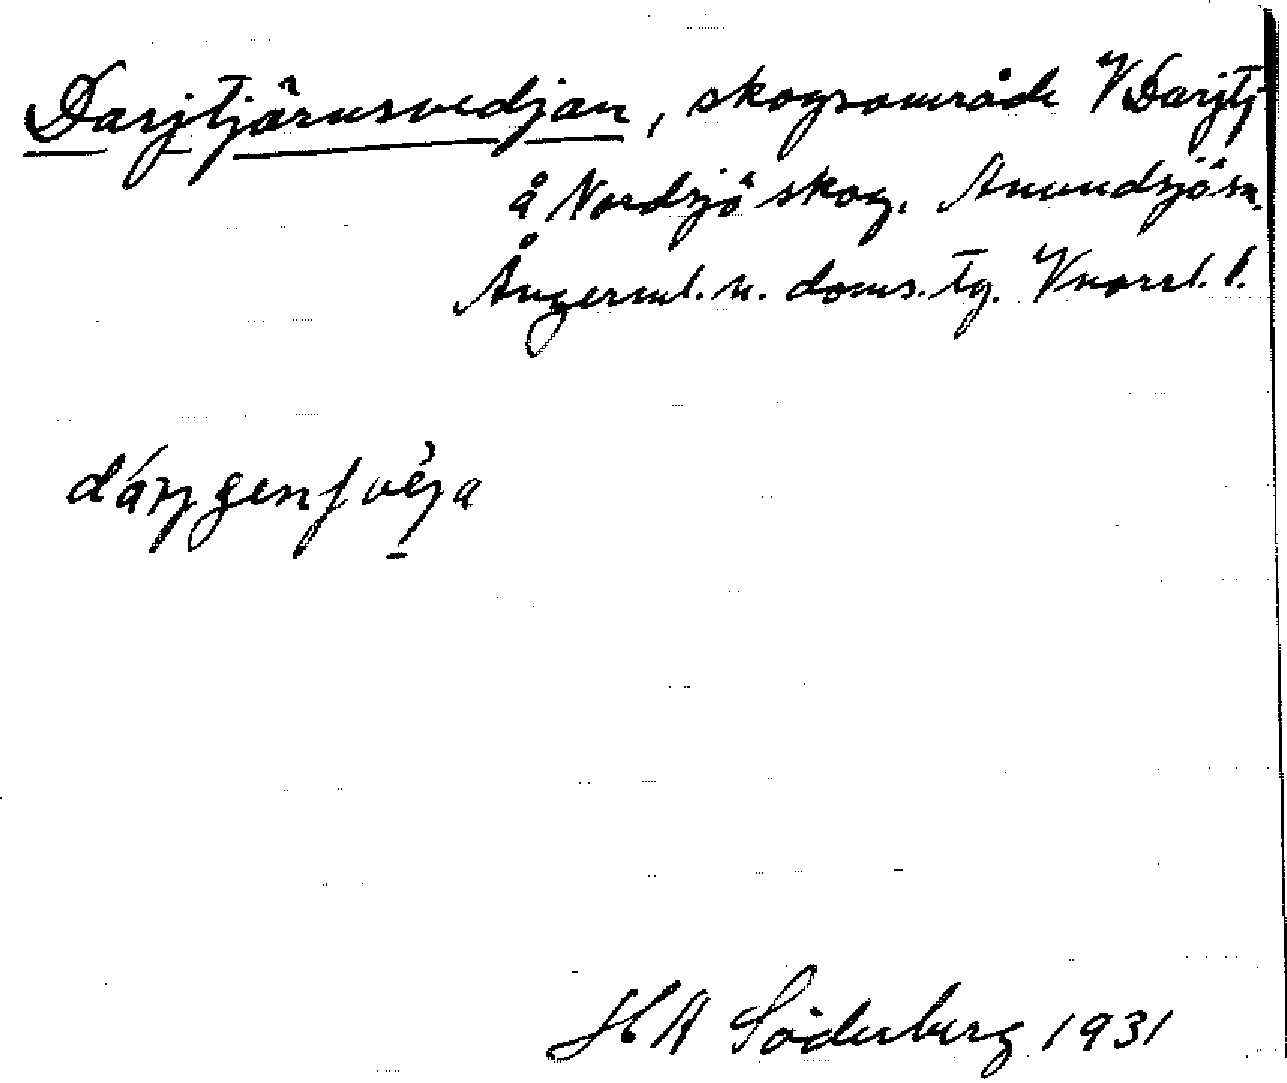 Darjtjärnsvedjan, skogsområde V Darjtj
å Nordsjö skog. Anundsjö sn.
Ångerml. n. doms. tg. Vnorrl. l.
H A Söderberg 1931